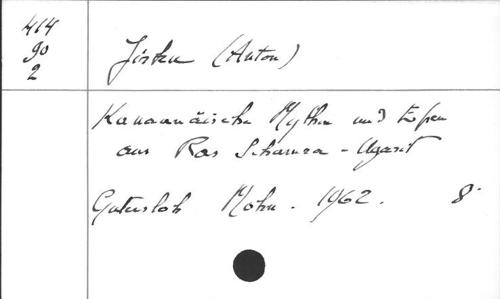 414
90
2
Jirku (Anton)
Kanaanäische Mythen und Epen
aus Ras Schamra - Ugarit
Gütersloh Mohn. 1962. 8°